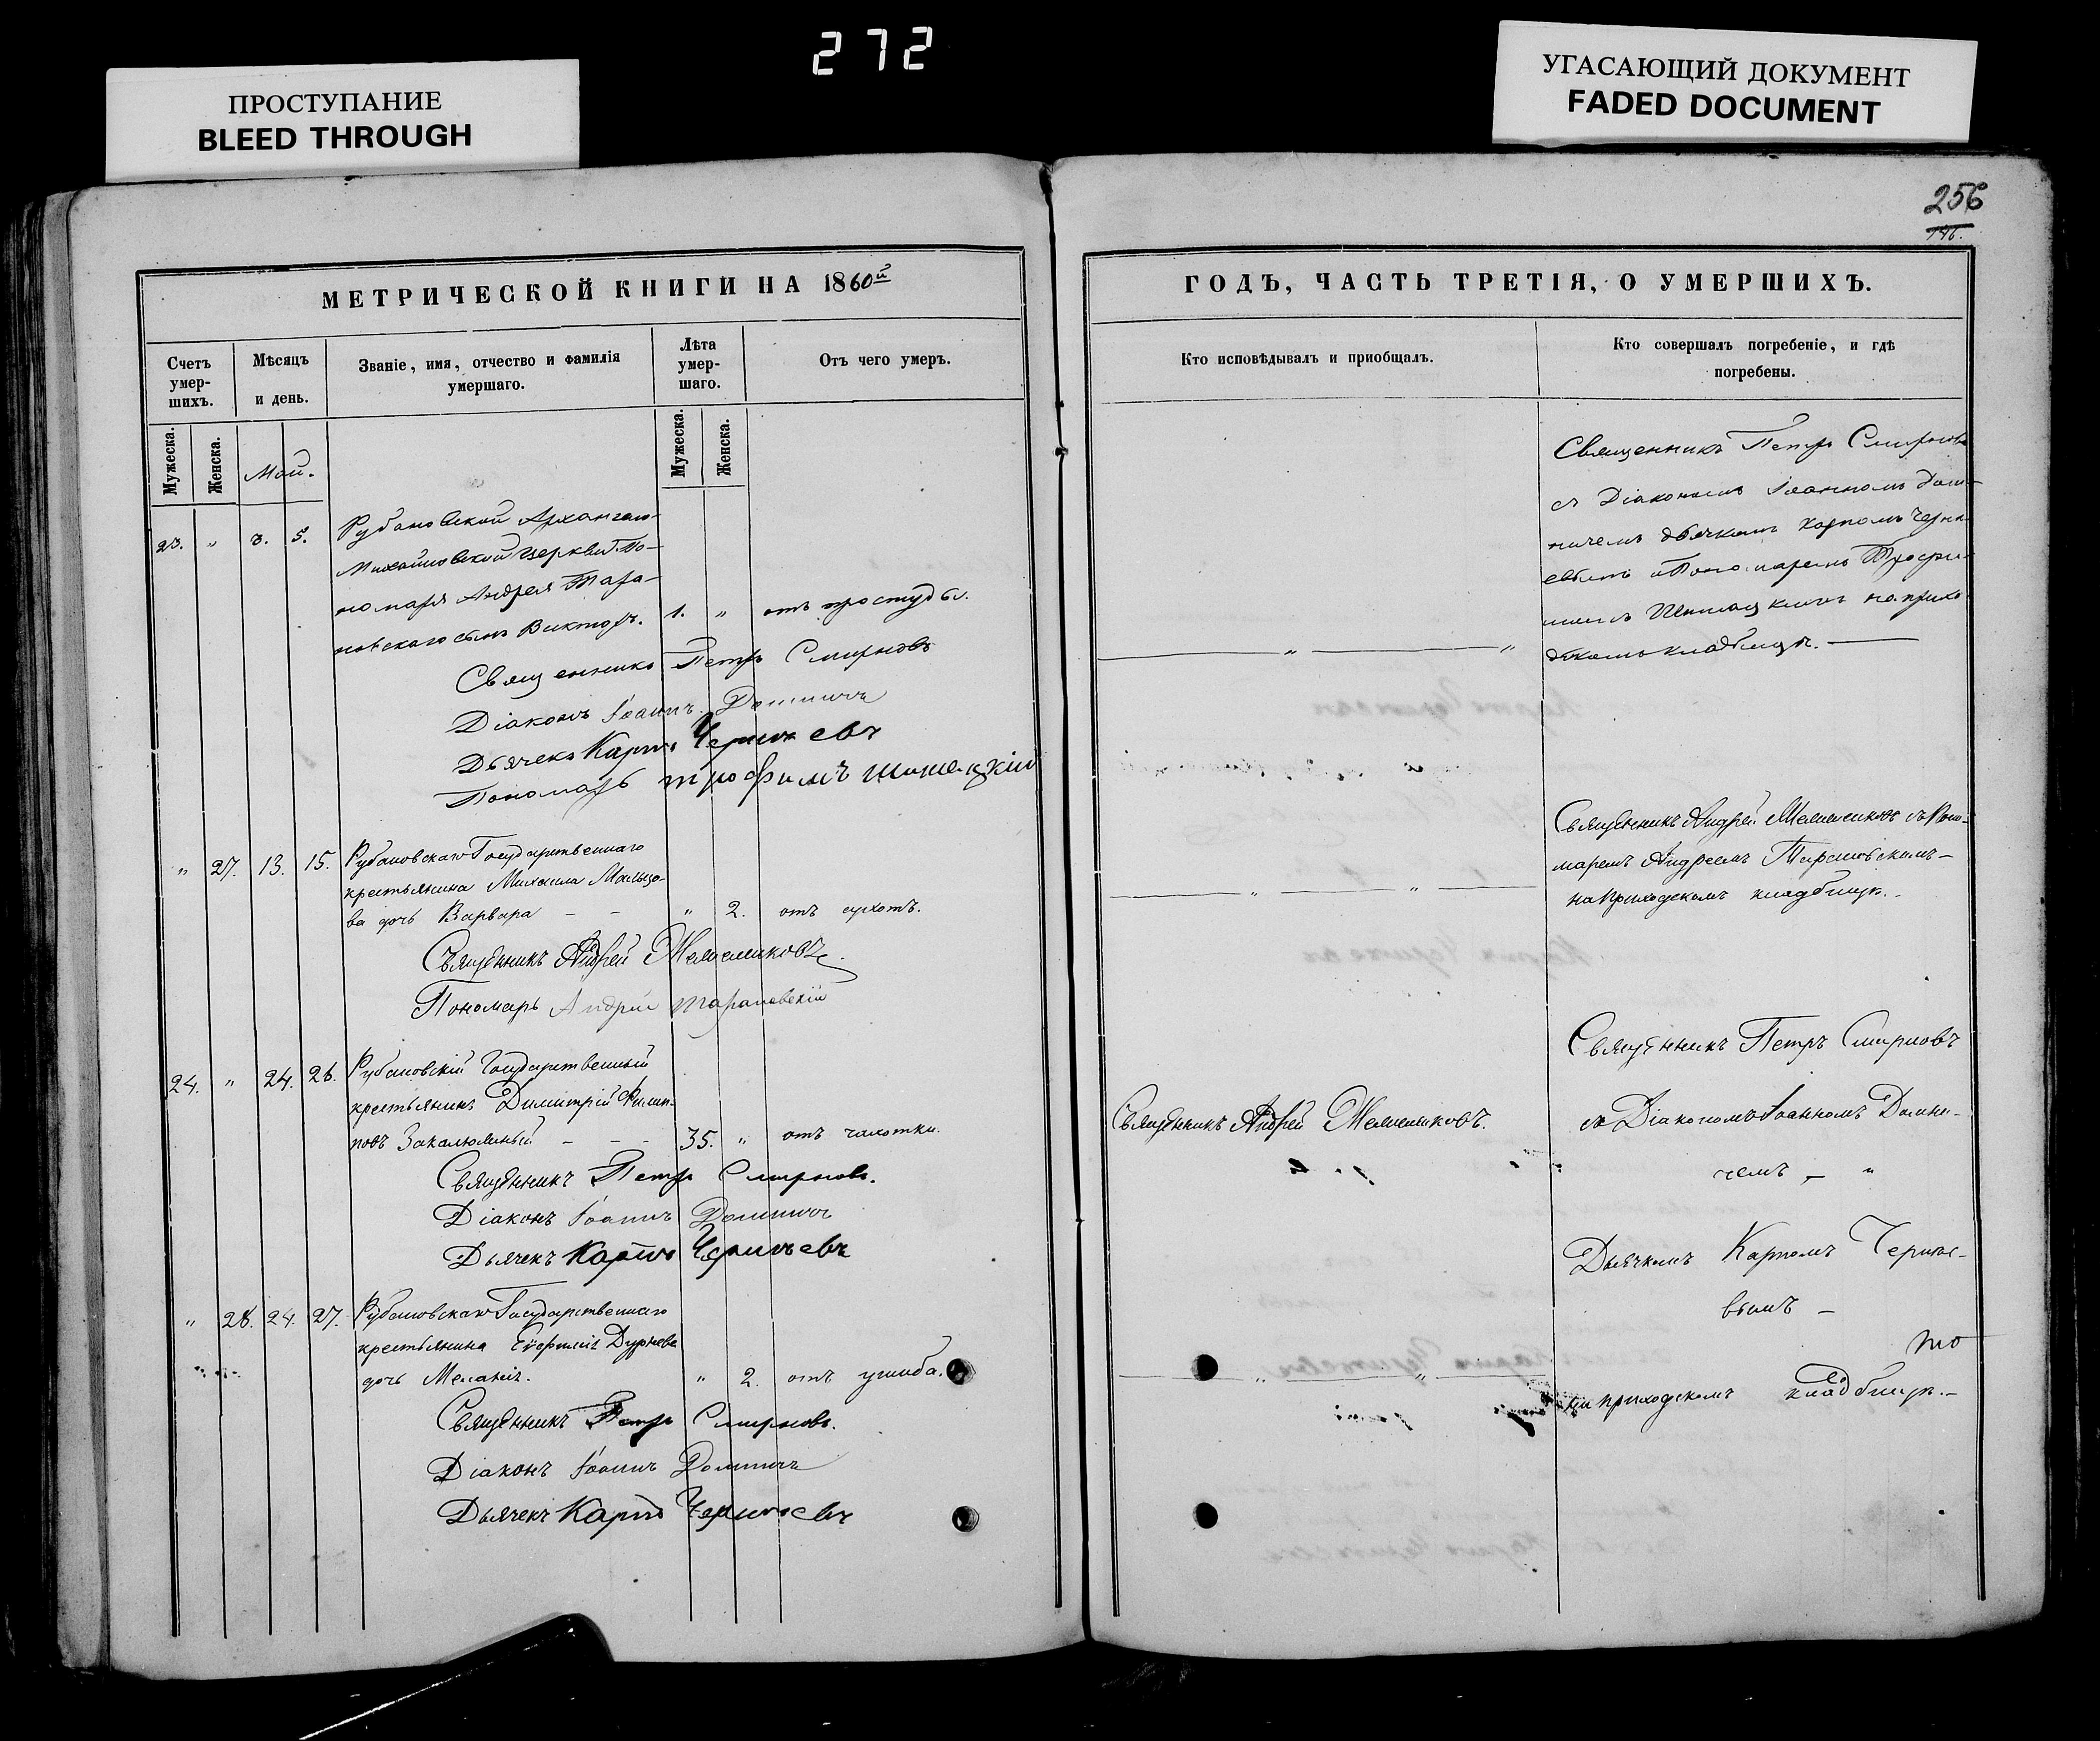 272
ПРОСТУПАНИЕ
BLEED THROUGH
УГАСАЮЩИЙ ДОКУМЕНТ
FADED DOCUMENT
256
МЕТРИЧЕСКОЙ КНИГИ НА 1860й
Счетъ умер-шихъ.
Мѣсяцъ и день.
Званіе, имя, отчество и фамилія умершаго.
Лѣта умер-шаго.
Отъ чего умеръ.
Мужеска.
Женска.
Май.
Мужеска.
Женска.
23. „ 3. 5. Рубановской Архангело-
Михайловской Церкви По-
номаря Андрея Тара-
новскаго сынъ Викторъ. 1. „ отъ простуды.
Священникъ Петръ Смирновъ
Діаконъ Іоаннъ Домничъ
Дьячекъ Карпъ Черняевъ
Пономарь Трофимъ
„ 27. 13. 15. Рубановскаго Государственнаго
крестьянина Михаила Мальцо-
ва дочь Варвара - - „ 2. отъ сухотъ.
Священникъ Андрей
Пономарь Андрей Тарановскій
24. „ 24. 26. Рубановскій Государственный
крестьянинъ Димитрій Филип-
повъ - - - 35. „ отъ чахотки.
Священникъ Петръ Смирновъ.
Діаконъ Іоаннъ Домничъ
Дьячекъ Карпъ Черняевъ
„ 28. 24. 27. Рубановскаго Государственнаго
крестьянина Евфимія Дурнева
дочь Меланія. „ 2. отъ ушиба.
Священникъ Петръ Смирновъ.
Діаконъ Іоаннъ Домничъ
Дьячекъ Карпъ Черняевъ
ГОДЪ, ЧАСТЬ ТРЕТІЯ, О УМЕРШИХЪ.
Кто исповѣдывалъ и пріобщалъ.
Кто совершалъ погребеніе, и гдѣ погребены.
Священникъ Петръ Смирновъ
съ Діакономъ Іоанномъ Дом-
ничемъ дьячкомъ Карпомъ Черня-
евымъ и Пономаремъ Трофи-
момъ на прихо-
дскомъ кладбищѣ.
Священникъ Андрей съ Поно-
маремъ Андреемъ Тарановскимъ -
на приходскомъ кладбищѣ.
Священникъ Андрей
Священникъ Петръ Смирновъ
съ Діакономъ Іоанномъ Домни-
чемъ - „
Дьячкомъ Карпомъ Черняе-
вымъ -
на приходскомъ кладбищѣ. -